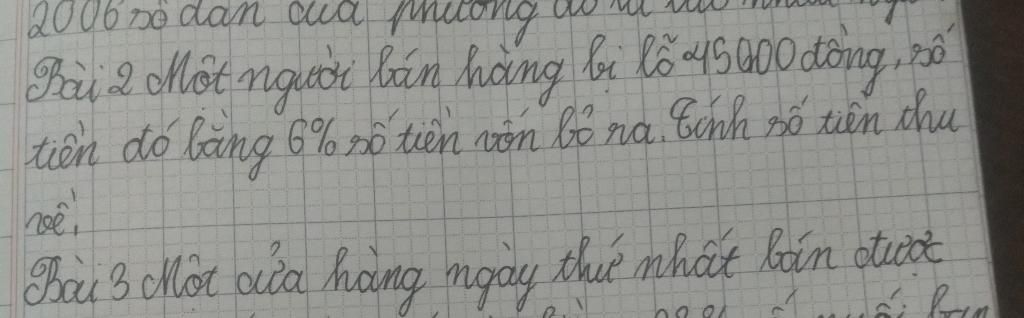 2006 số dân của phường đó là
Bài 2 Một người bán hàng bị lỗ 45000 đồng, số
tiền đó bằng 6% số tiền vốn bỏ ra. Tính số tiền thu
về.
Bài 3 Một cửa hàng ngày thứ nhất bán được